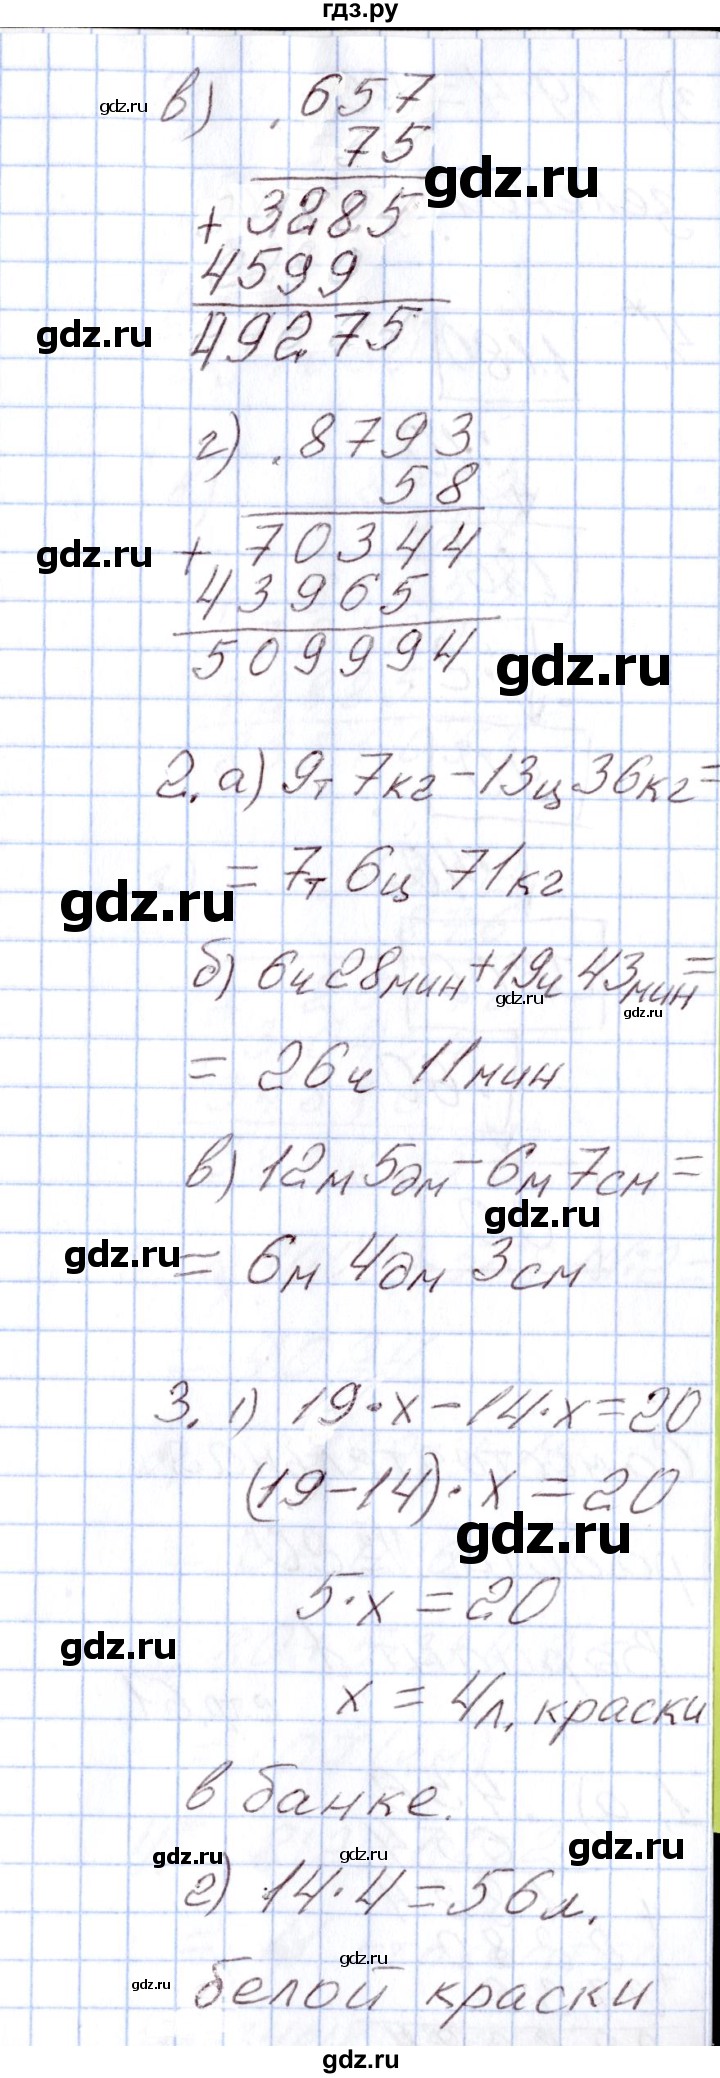 гдз.ру
gdz.ru
в) 657
75
gdz.ru
+ 3285
4599
gdz.ru
49275
г) 8793
58
gdz.ru
+ 70344
43965
509994
gdz.ru
2. а) 9т 7кг - 13ц 36кг =
= 7т 6ц 71кг
gdz.ru
б) 6ч 28мин + 19ч 43мин =
gdz.ru
gdz.ru
= 26ч 11мин
в) 12м 5дм - 6м 7см =
gdz.ru
gdz.ru
= 6м 4дм 3см
3. 1) 19·х - 14·х = 20
(19 - 14)·х = 20
gdz.ru
5·х = 20
gdz.ru
х = 4л. краски
в банке.
gdz.ru
gdz.ru
gdz.ru
2) 14·4 = 56л.
gdz.ru
gdz.ru
белой краски
gdz.ru